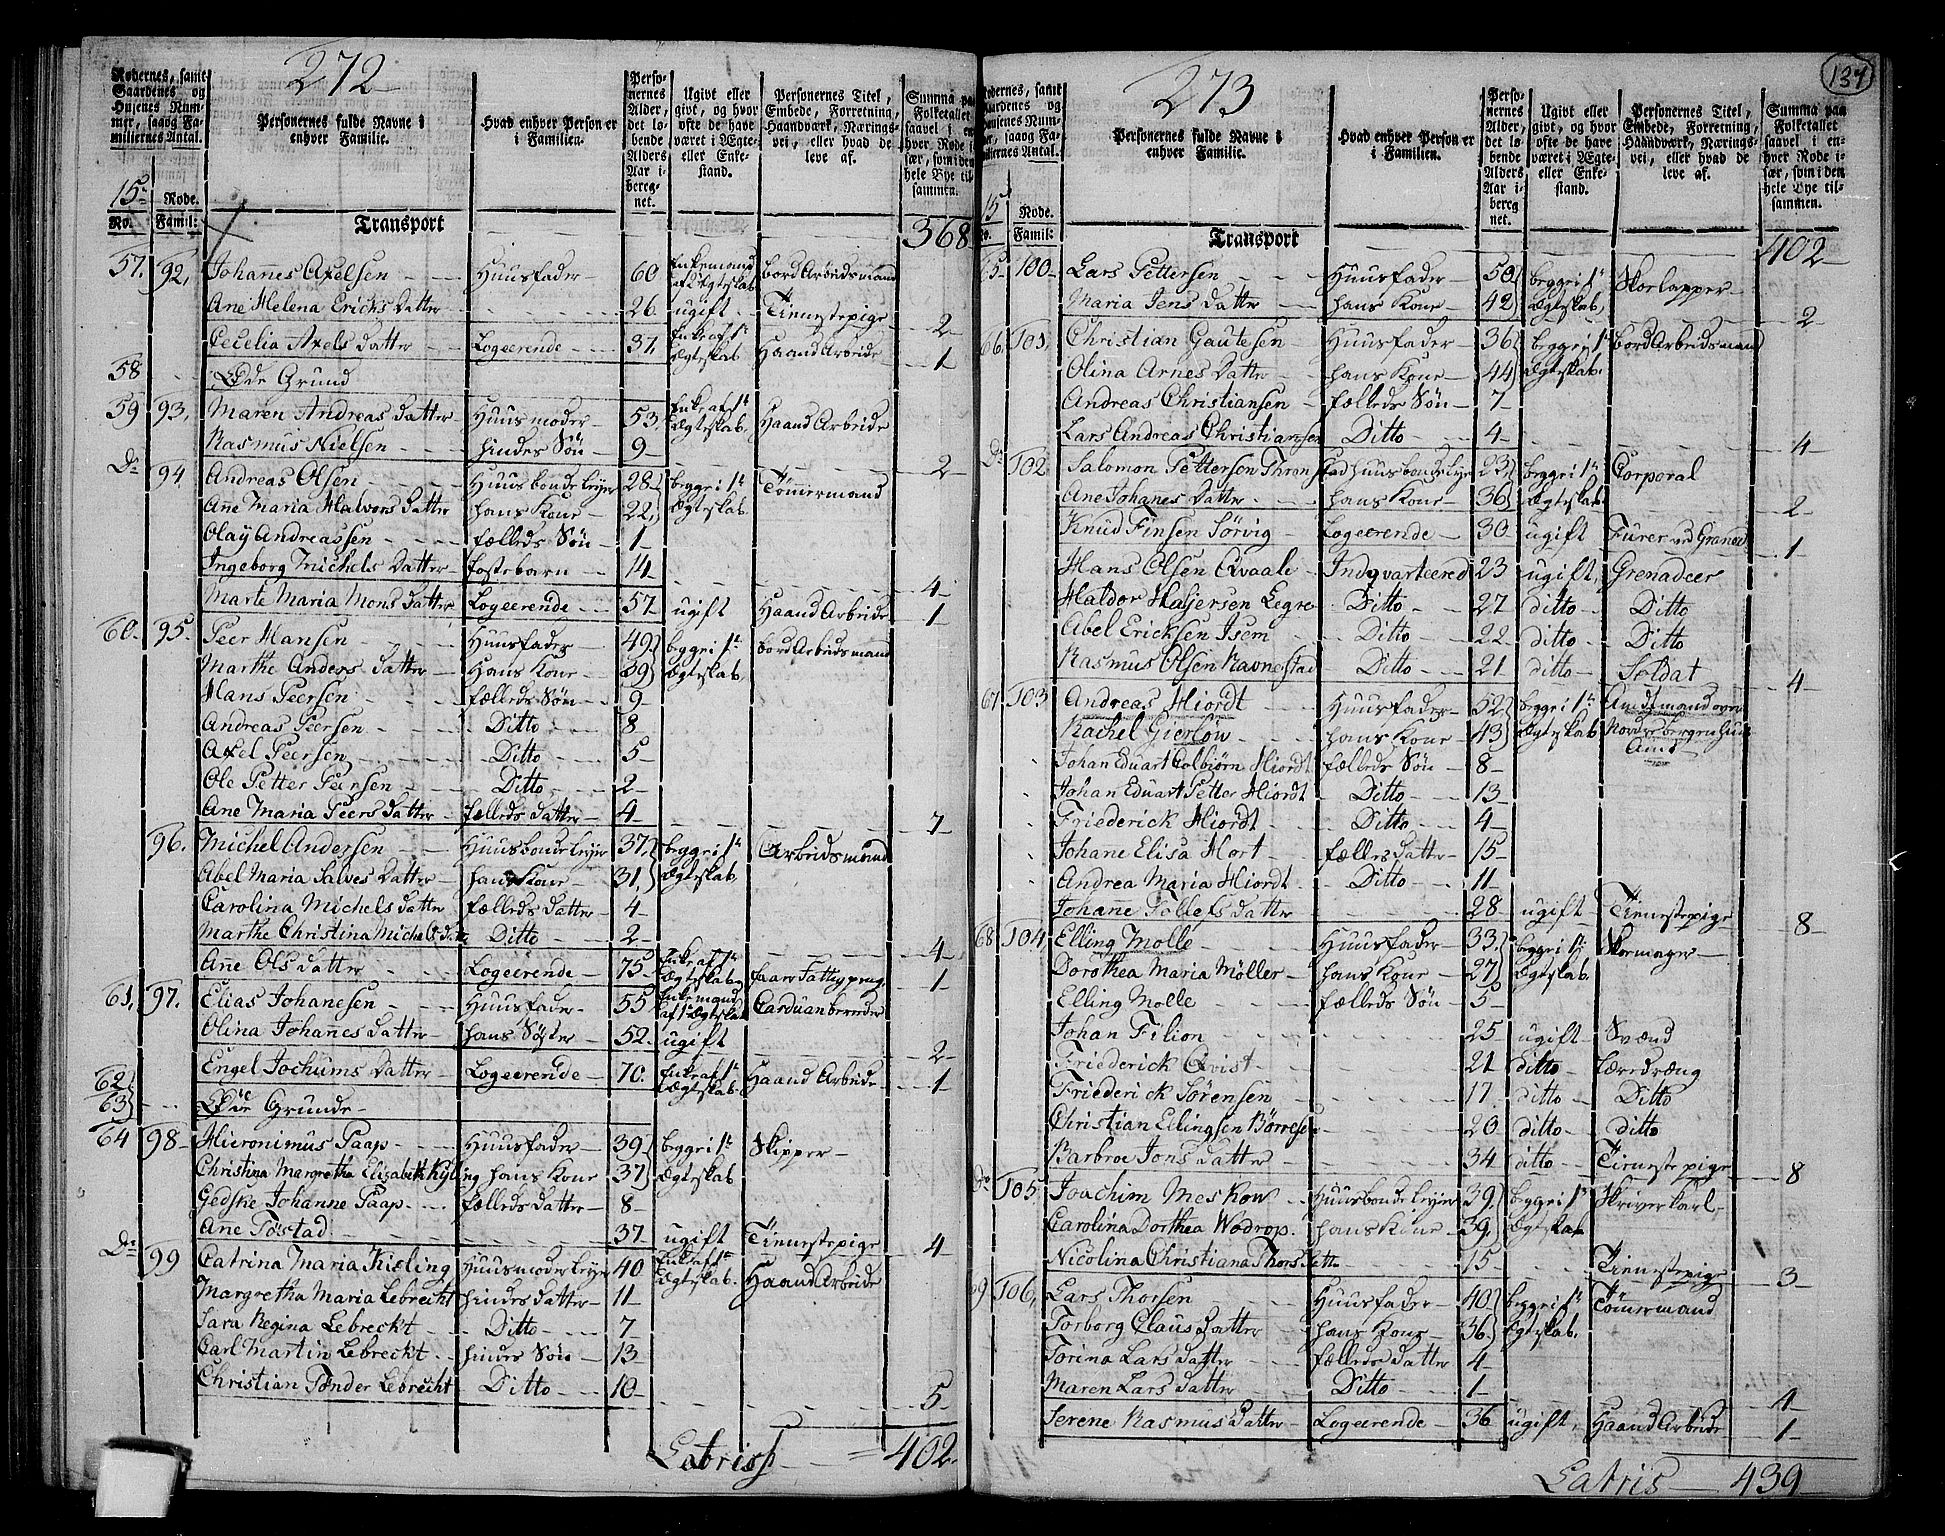 272
Rodernes, samt Gaardenes og Husenes Nummer, saavog Familiernes Antal.
Personernes fulde Navne i enhver Familie.
Hvad enhver Person er i Familien.
Personernes Alder, det løbende Alders Aar iberegnet.
Ugivt eller givt, og hvor ofte de have været i Ægte- eller Enkestand.
Personernes Titel, Embede, Forretning, Haandværk, Næringsvei, eller hvad de leve af.
Summa paa Folketallet saavel i enhver Rode især, som i den hele Bye tilsammen.
15de Rode.
No. Famil:
Transport 368
57. 92, Johanes Axelsen Huusfader 60 Enkemand af 1 Ægteskab bord Arbeidsmand
Ane Helena Ericks Datter 26 ugift Tienestepige 2
Cecelia Axels datter Logeerende 37 Enke af 1te Ægteskab Haand Arbeide 1
58 Øde Grund
59 93, Maren Andreas datter Huusmoder 53, Enke af 1te Ægteskab, Haand Arbeide
Rasmus Nielsen hindes Søn 9 2
Do 94 Andreas Olsen Huusbonde leyer 28 begge i 1te Ægteskab Tømmermand
Ane Maria Halvors datter hans Kone 22,
Olay Andreassen fælleds Søn 1
Ingeborg Michels Datter fostebarn 14 4
Marte Maria Mons datter Logeerende 57 ugift Haand Arbeide 1
60. 95. Peer Hansen Huusfader 49 begge i 1te Ægteskab, bord Arbeidsmand
Marthe Anders datter Hans Kone 39
Hans Peersen fælleds Søn 9
Andreas Peersen Ditto 8
Axel Peersen Ditto 5
Ole Petter Peersen Ditto 2
Ane Maria Peers datter fælleds datter 4 7
96. Michel Andersen Huusbonde leyer 37 begge i 1te Ægteskab, Arbeidsmand
Abel Maria Salves datter hans Kone 31,
Carolina Michels datter fælleds datter 4
Marthe Christina Michels d. Ditto 2 4
Anne Ols datter Logeerende 75 Enke af 1te Ægteskab faaer Fattigpeng, 1
61, 97. Elias Johanesen Huusfader 55 Enkemand af 1 Ægteskab Carduanbereeder
Olina Johannes datter hans Søster 52 ugift 2
Engel Jochums Datter Logeerende 70. Enke af 1te Ægteskab Haand Arbeide 1
62
63 Øde Grunde
64 98 Hieronimus Paap Huusfader 39 begge i 1te Ægteskab Skipper
Christina Margretha Elisabeth Kysling hans Kone 37
Gedske Johanne Paap fælleds datter 8
Anne Tøstad 37 ugift Tienestepige 4
Do 99 Catrina Maria Kisling Huusmoder leyer 40 Enke af 1te Ægteskab. Haand Arbeide
Margretha Maria Lebrecht hindes datter 11
Sara Regina Lebreckt Ditto 7
Carl Martin Lebreckt hindes Søn 13
Christian Tønder Lebrecht Ditto 10 5
Latriss 402
137
273
Rodernes, samt Gaardenes og Husenes Nummer, saavog Familiernes Antal.
Personernes fulde Navne i enhver Familie.
Hvad enhver Person er i Familien.
Personernes Alder, det løbende Alders Aar iberegnet.
Ugivt eller givt, og hvor ofte de have været i Ægte- eller Enkestand.
Personernes Titel, Embede, Forretning, Haandværk, Næringsvei, eller hvad de leve af.
Summa paa Folketallet saavel i enhver Rode især, som i den hele Bye tilsammen.
15 Rode.
No. Famil:
Transport 402
65. 100 Lars Pettersen Huusfader 50 begge i 1te Ægteskab, Skoelapper
Maria Jens datter hans Kone 42 2
66. 101, Christian Gautesen Huusfader 36 begge i 1te Ægteskab. bord Arbeidsmand
Olina Arnes Datter hans Kone 44
Andreas Christiansen fælleds Søn 7
Lars Andreas Christiansen Ditto 4 4
Do 102 Salomon Pettersen Thronstad Huusbonde leyer 23 begge i 1te Ægteskab Corporal
Ane Johanes datter hans Kone 36 2
Knud Finsen Sørvig Logeerende 30 ugift Furer ved Granad. 1
Hans Olsen Qvaale Indqvarteered 23 ugift, Grenadeer
Haldor Halgersen Legre Ditto 27 ditto Ditto
Abel Ericksen Isem Ditto 22 ditto Ditto
Rasmus Olsen Ravnestad Ditto 21 ditto Soldat 4
67. 103 Andreas Hiordt Huusfader 52 begge i 1te Ægteskab Amdtmand over Nordrebergenhuus Amt
Rachel Gierløw hans Kone 43
Johan Eduart Colbiørn Hiordt fælleds Søn 8
Johan Eduart Petter Hiordt Ditto 13
Friederick Hiordt Ditto 4
Johane Elisa Hiort fælles datter 15
Andrea Maria Hiordt Ditto 11
Johanne Tollefs datter 28 ugift Tienestepige 8
68 104 Elling Molle Huusfader 33. begge i 1te Ægteskab. Skoemager
Dorothea Maria Møller hans Kone 27
Elling Molle fælleds Søn 5
Johan Filion 25 ugift Svænd
Friederick Qvist 21 ditto Læredræng
Friederick Sørensen 17 ditto Ditto
Christian Ellingsen Børresen 20 ditto ditto
Barbroe Jons datter 34 ditto Tieneste pige 8
Do 105 Joachim Meskow Huusbonde leyer 39, begge i 1te Ægteskab Skriverkarl
Carolina Dorthea Wodrop. hans Kone 39
Nicolina Christiana Thors datter 15 Tienestepige 3
69 106, Lars Thorsen Huusfader 40 begge i 1te Ægteskab. Tømmermand
Torborg Claus datter hans Kone 36
Torina Lars datter fælleds datter 4
Maren Lars datter Ditto 1 4
Serene Rasmus datter Logeerende 36 ugift, Haand Arbeide 1
Latris 439